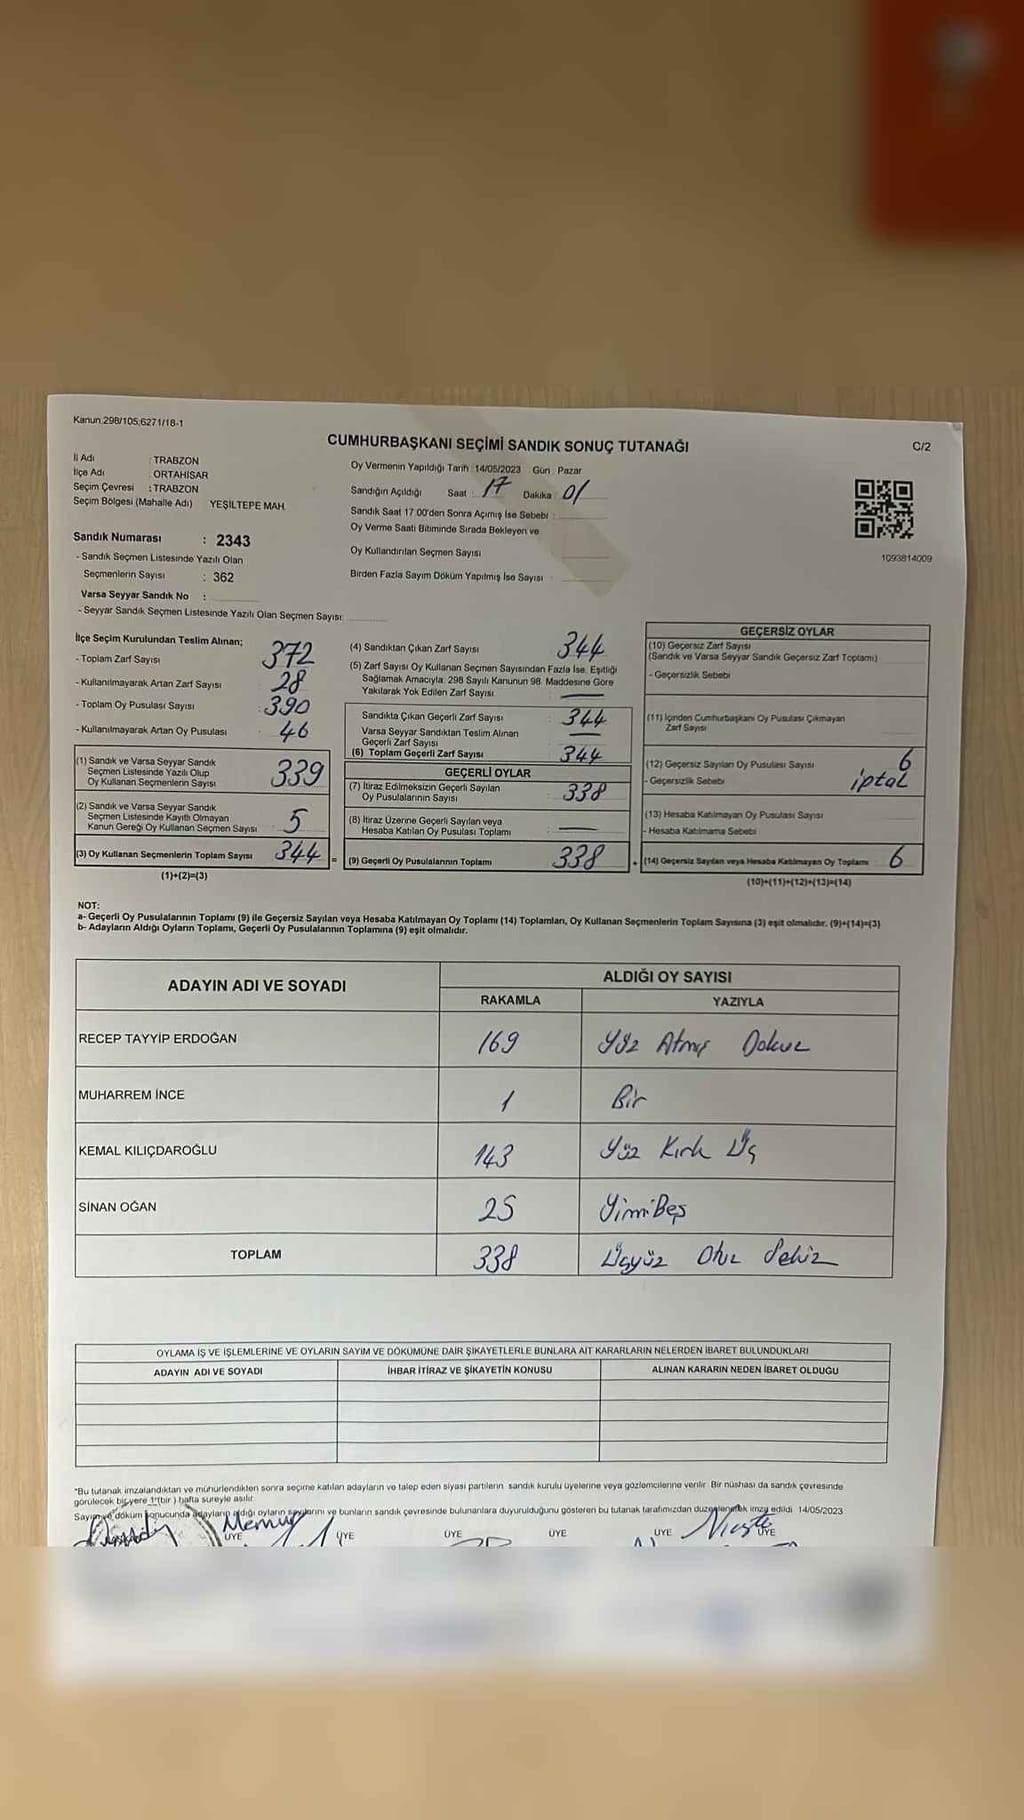 Kanun 298/105,6271/18-1
CUMHURBAŞKANI SEÇİMİ SANDIK SONUÇ TUTANAĞI
C/2
İl Adı : TRABZON
İlçe Adı : ORTAHİSAR
Seçim Çevresi : TRABZON
Seçim Bölgesi (Mahalle Adı) YEŞİLTEPE MAH.
Sandık Numarası : 2343
- Sandık Seçmen Listesinde Yazılı Olan
Seçmenlerin Sayısı : 362
Varsa Seyyar Sandık No :
- Seyyar Sandık Seçmen Listesinde Yazılı Olan Seçmen Sayısı:
Oy Vermenin Yapıldığı Tarih : 14/05/2023 Gün : Pazar
Sandığın Açıldığı Saat : 17 Dakika : 01
Sandık Saat 17.00'den Sonra Açımış İse Sebebi :
Oy Verme Saati Bitiminde Sırada Bekleyen ve
Oy Kullandırılan Seçmen Sayısı
Birden Fazla Sayım Döküm Yapılmış İse Sayısı :
1093814009
İlçe Seçim Kurulundan Teslim Alınan;
- Toplam Zarf Sayısı : 372
- Kullanılmayarak Artan Zarf Sayısı : 28
- Toplam Oy Pusulası Sayısı : 390
- Kullanılmayarak Artan Oy Pusulası : 46
(1) Sandık ve Varsa Seyyar Sandık
Seçmen Listesinde Yazılı Olup
Oy Kullanan Seçmenlerin Sayısı : 339
(2) Sandık ve Varsa Seyyar Sandık
Seçmen Listesinde Kayıtlı Olmayan
Kanun Gereği Oy Kullanan Seçmen Sayısı : 5
(3) Oy Kullanan Seçmenlerin Toplam Sayısı : 344 =
(1)+(2)=(3)
(4) Sandıktan Çıkan Zarf Sayısı : 344
(5) Zarf Sayısı Oy Kullanan Seçmen Sayısından Fazla İse, Eşitliği
Sağlamak Amacıyla: 298 Sayılı Kanunun 98. Maddesine Göre
Yakılarak Yok Edilen Zarf Sayısı : —
Sandıkta Çıkan Geçerli Zarf Sayısı : 344
Varsa Seyyar Sandıktan Teslim Alınan
Geçerli Zarf Sayısı : —
(6) Toplam Geçerli Zarf Sayısı : 344
GEÇERLİ OYLAR
(7) İtiraz Edilmeksizin Geçerli Sayılan
Oy Pusulalarının Sayısı : 338
(8) İtiraz Üzerine Geçerli Sayılan veya
Hesaba Katılan Oy Pusulası Toplamı : —
(9) Geçerli Oy Pusulalarının Toplamı : 338 +
GEÇERSİZ OYLAR
(10) Geçersiz Zarf Sayısı
(Sandık ve Varsa Seyyar Sandık Geçersiz Zarf Toplamı)
- Geçersizlik Sebebi
(11) İçinden Cumhurbaşkanı Oy Pusulası Çıkmayan
Zarf Sayısı
(12) Geçersiz Sayılan Oy Pusulası Sayısı 6
- Geçersizlik Sebebi iptal
(13) Hesaba Katılmayan Oy Pusulası Sayısı
- Hesaba Katılmama Sebebi
(14) Geçersiz Sayılan veya Hesaba Katılmayan Oy Toplamı 6
(10)+(11)+(12)+(13)=(14)
NOT:
a- Geçerli Oy Pusulalarının Toplamı (9) ile Geçersiz Sayılan veya Hesaba Katılmayan Oy Toplamı (14) Toplamları, Oy Kullanan Seçmenlerin Toplam Sayısına (3) eşit olmalıdır. (9)+(14)=(3)
b- Adayların Aldığı Oyların Toplamı, Geçerli Oy Pusulalarının Toplamına (9) eşit olmalıdır.
ADAYIN ADI VE SOYADI
ALDIĞI OY SAYISI
RAKAMLA YAZIYLA
RECEP TAYYİP ERDOĞAN 169 Yüz Atmış Dokuz
MUHARREM İNCE 1 Bir
KEMAL KILIÇDAROĞLU 143 Yüz Kırk Üç
SİNAN OĞAN 25 YirmiBeş
TOPLAM 338 Üçyüz Otuz Sekiz
OYLAMA İŞ VE İŞLEMLERİNE VE OYLARIN SAYIM VE DÖKÜMÜNE DAİR ŞİKAYETLERLE BUNLARA AİT KARARLARIN NELERDEN İBARET BULUNDUKLARI
ADAYIN ADI VE SOYADI İHBAR İTİRAZ VE ŞİKAYETİN KONUSU ALINAN KARARIN NEDEN İBARET OLDUĞU
*Bu tutanak imzalandıktan ve mühürlendikten sonra seçime katılan adayların ve talep eden siyasi partilerin sandık kurulu üyelerine veya gözlemcilerine verilir. Bir nüshası da sandık çevresinde
görülecek bir yere 1 (bir) hafta süreyle asılır.
Sayım ve döküm sonucunda adayların aldığı oyların sayılarını ve bunların sandık çevresinde bulunanlara duyurulduğunu gösteren bu tutanak tarafımızdan düzenlenerek imza edildi. 14/05/2023
ÜYE ÜYE ÜYE ÜYE ÜYE ÜYE